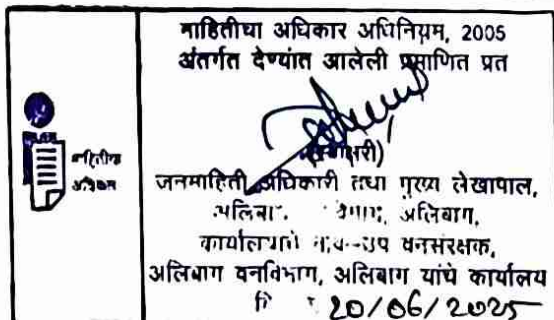 माहितीचा अधिकार अधिनियम, 2005
अंतर्गत देण्यांत आलेली प्रमाणित प्रत
जनमाहिती अधिकारी तथा मुख्य लेखापाल,
अलिबाग, अलिबाग,
कार्यालयाचे उप वनसंरक्षक,
अलिबाग वनविभाग, अलिबाग यांचे कार्यालय
20/06/2025
माहितीचा
अधिकार